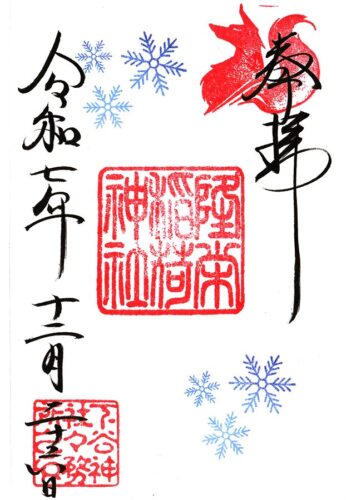 奉拝
隆栄
稲荷
神社
令和七年 十二月 二十六日
下谷神
社々務